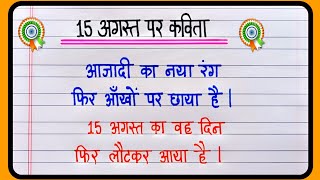 15 अगस्त पर कविता
आजादी का नया रंग
फिर आँखों पर छाया है |
15 अगस्त का वह दिन
फिर लौटकर आया है |